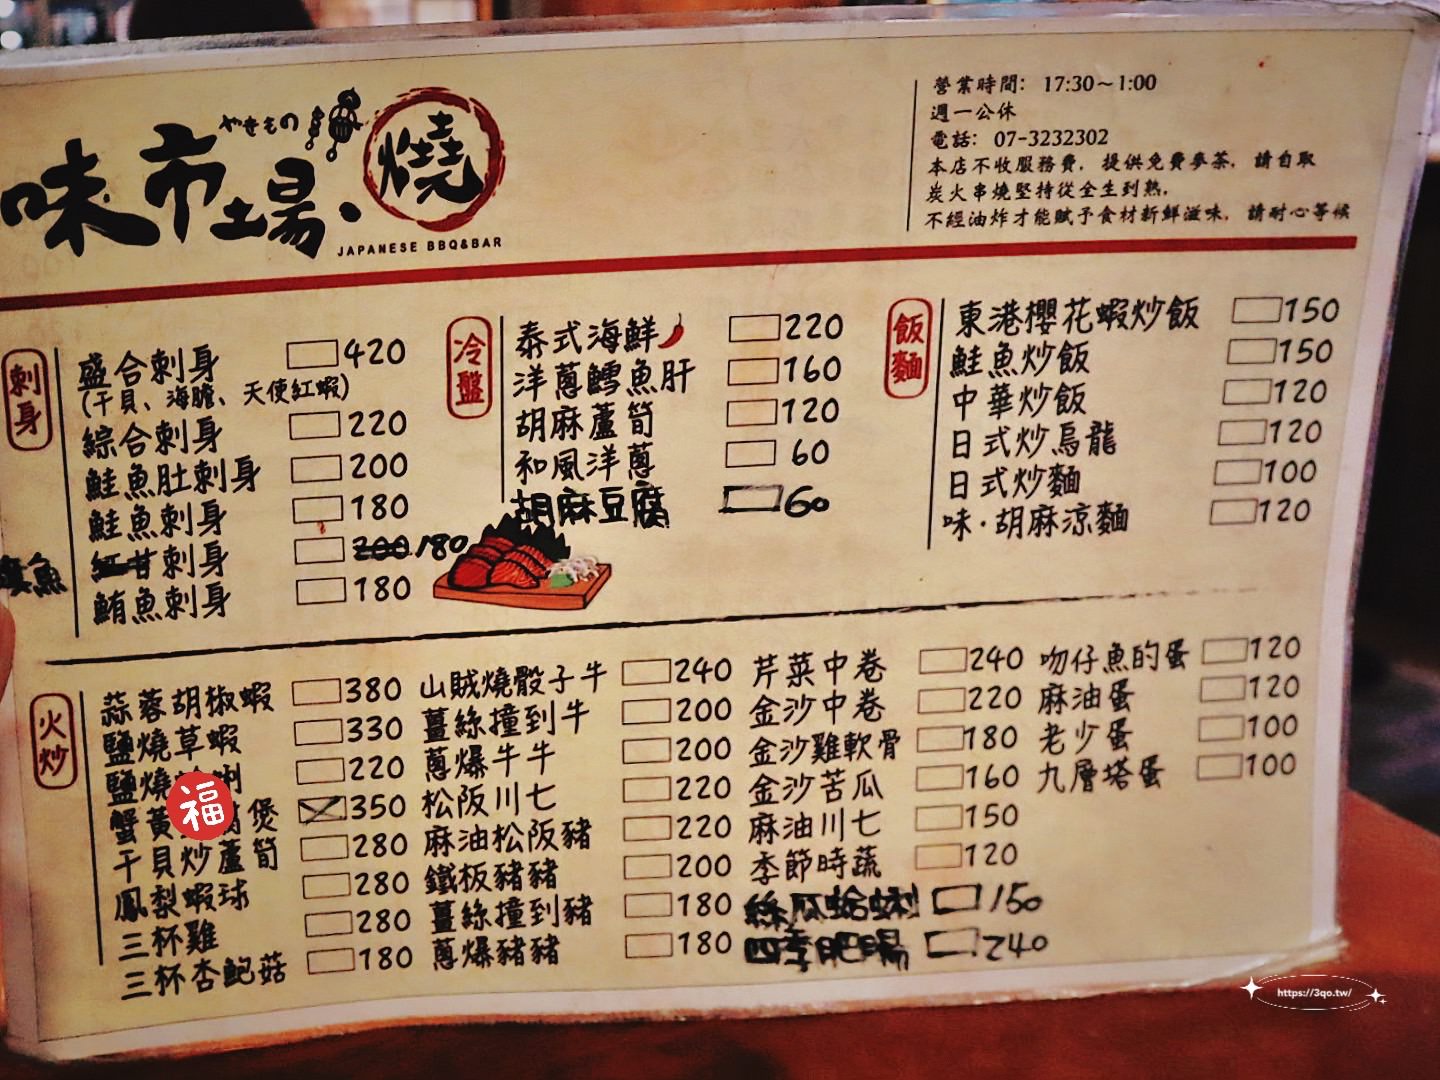 やきもの
味市場·燒
JAPANESE BBQ&BAR
營業時間: 17:30~1:00
週一公休
電話: 07-3232302
本店不收服務費, 提供免費麥茶, 請自取
炭火串燒堅持從全生到熟,
不經油炸才能賦予食材新鮮滋味, 請耐心等候
刺身
盛合刺身 420
(干貝、海膽、天使紅蝦)
綜合刺身 220
鮭魚肚刺身 200
鮭魚刺身 180
魚 紅甘刺身 200 180
鮪魚刺身 180
冷盤
泰式海鮮 220
洋蔥鱈魚肝 160
胡麻蘆筍 120
和風洋蔥 60
胡麻豆腐 60
飯麵
東港櫻花蝦炒飯 150
鮭魚炒飯 150
中華炒飯 120
日式炒烏龍 120
日式炒麵 100
味·胡麻涼麵 120
火炒
蒜蓉胡椒蝦 380
鹽燒草蝦 330
鹽燒 蜊 220
蟹黃 煲 350
干貝炒蘆筍 280
鳳梨蝦球 280
三杯雞 280
三杯杏鮑菇 180
山賊燒骰子牛 240
薑絲撞到牛 200
蔥爆牛牛 200
松阪川七 220
麻油松阪豬 220
鐵板豬豬 200
薑絲撞到豬 180
蔥爆豬豬 180
芹菜中卷 240
金沙中卷 220
金沙雞軟骨 180
金沙苦瓜 160
麻油川七 150
季節時蔬 120
絲瓜蛤蜊 150
四季肥腸 240
吻仔魚的蛋 120
麻油蛋 120
老少蛋 100
九層塔蛋 100
福
https://3qo.tw/